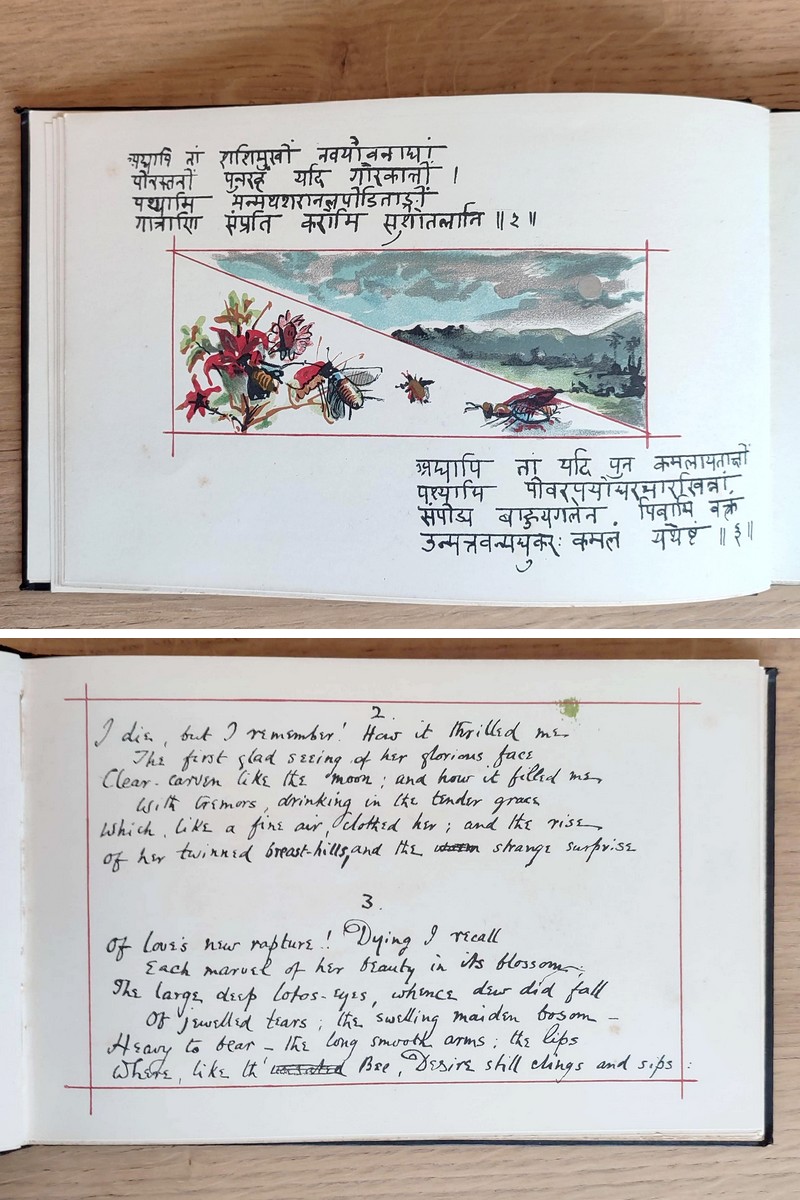 अद्यापि तां शशिमुखीं नवयौवनाढ्यां
पीनस्तनीं पुनरहं यदि गौरकान्तीं ।
पश्यामि मन्मथशरानलपीडिताङ्गीं
गात्राणि संप्रति करोमि सुशीतलानि ॥२॥
अद्यापि तां यदि पुन कमलायताक्षीं
पश्यामि पीवरपयोधरभारखिन्नां
संपीड्य बाहुयुगलेन पिबामि वक्त्र
उन्मत्तवन्मधुकरः कमलं यथेष्टं ॥३॥
2.
I die, but I remember! How it thrilled me
The first glad seeing of her glorious face
Clear-carven like the moon; and how it filled me,
With tremors, drinking in the tender grace
Which, like a fine air, clothed her; and the rise
Of her twinned breast-hills, and the warm strange surprise
3.
Of love's new rapture! Dying I recall
Each marvel of her beauty in its blossom;
The large deep lotos-eyes, whence dew did fall
Of jewelled tears; the swelling maiden bosom -
Heavy to bear - the long smooth arms; the lips
Where, like th' Bee, Desire still clings and sips: